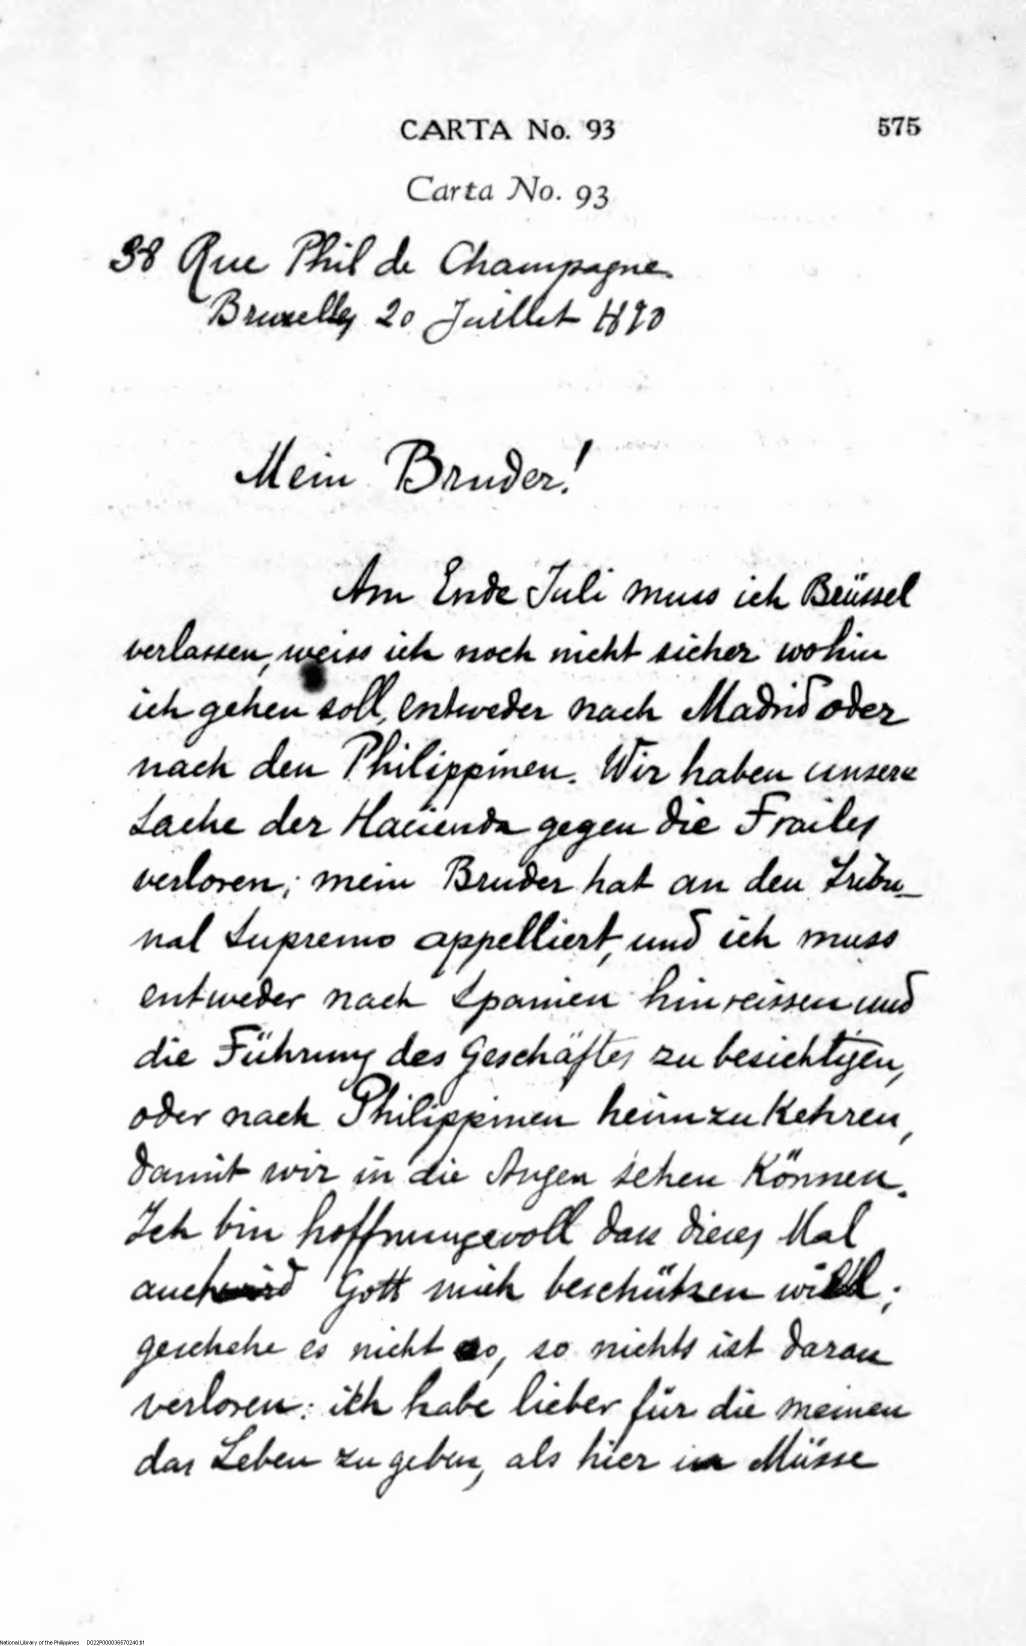 CARTA No. 93
575
Carta No. 93
38 Rue Phil de Champagne
Bruxelles 20 Juillet 1890
Mein Bruder!
Am Ende Juli muss ich Brüssel
verlassen, weiss ich noch nicht sicher wohin
ich gehen soll, entweder nach Madrid oder
nach den Philippinen. Wir haben unsere
Sache der Hacienda gegen die Frailes
verloren; mein Bruder hat an den Tribu_
nal Supremo appelliert, und ich muss
entweder nach Spanien hinreissen und
die Führung des Geschäftes zu besichtigen,
oder nach Philippinen heimzukehren,
damit wir in die Augen sehen können.
Ich bin hoffnungsvoll dass dieses Mal
auch Gott mich beschützen will;
geschehe es nicht so, so nichts ist daran
verloren: ich habe lieber für die meinen
das Leben zu geben, als hier in Müsse
National Library of the Philippines